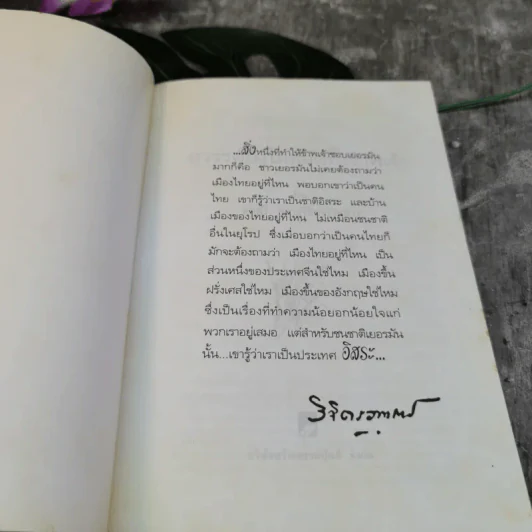 ...สิ่งหนึ่งที่ทำให้ข้าพเจ้าชอบเยอรมัน
มากก็คือ ชาวเยอรมันไม่เคยต้องถามว่า
เมืองไทยอยู่ที่ไหน พอบอกเขาว่าเป็นคน
ไทย เขาก็รู้ว่าเราเป็นชาติอิสระ และบ้าน
เมืองของไทยอยู่ที่ไหน ไม่เหมือนชนชาติ
อื่นในยุโรป ซึ่งเมื่อบอกว่าเป็นคนไทยก็
มักจะต้องถามว่า เมืองไทยอยู่ที่ไหน เป็น
ส่วนหนึ่งของประเทศจีนใช่ไหม เมืองขึ้น
ฝรั่งเศสใช่ไหม เมืองขึ้นของอังกฤษใช่ไหม
ซึ่งเป็นเรื่องที่ทำความน้อยอกน้อยใจแก่
พวกเราอยู่เสมอ แต่สำหรับชนชาติเยอรมัน
นั้น...เขารู้ว่าเราเป็นประเทศ อิสระ...